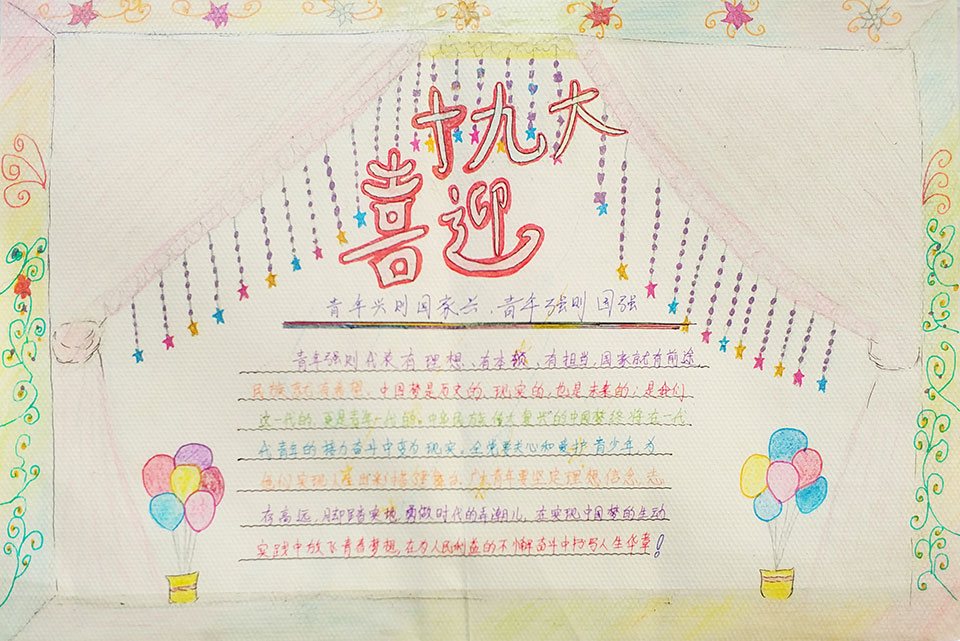 十九大
喜迎
青年兴则国家兴、青年强则国强
青年强则代表有理想、有本领、有担当,国家就有前途,
民族就有希望。中国梦是历史的、现实的,也是未来的;是我们
这一代的,更是青年一代的。中华民族伟大复兴的中国梦终将在一代
代青年的接力奋斗中变为现实。全党要关心和爱护青少年,为
他们实现人生出彩搭建舞台。广大青年要坚定理想信念,志
存高远,脚踏实地,勇做时代的弄潮儿,在实现中国梦的生动
实践中放飞青春梦想,在为人民利益的不懈奋斗中书写人生华章!